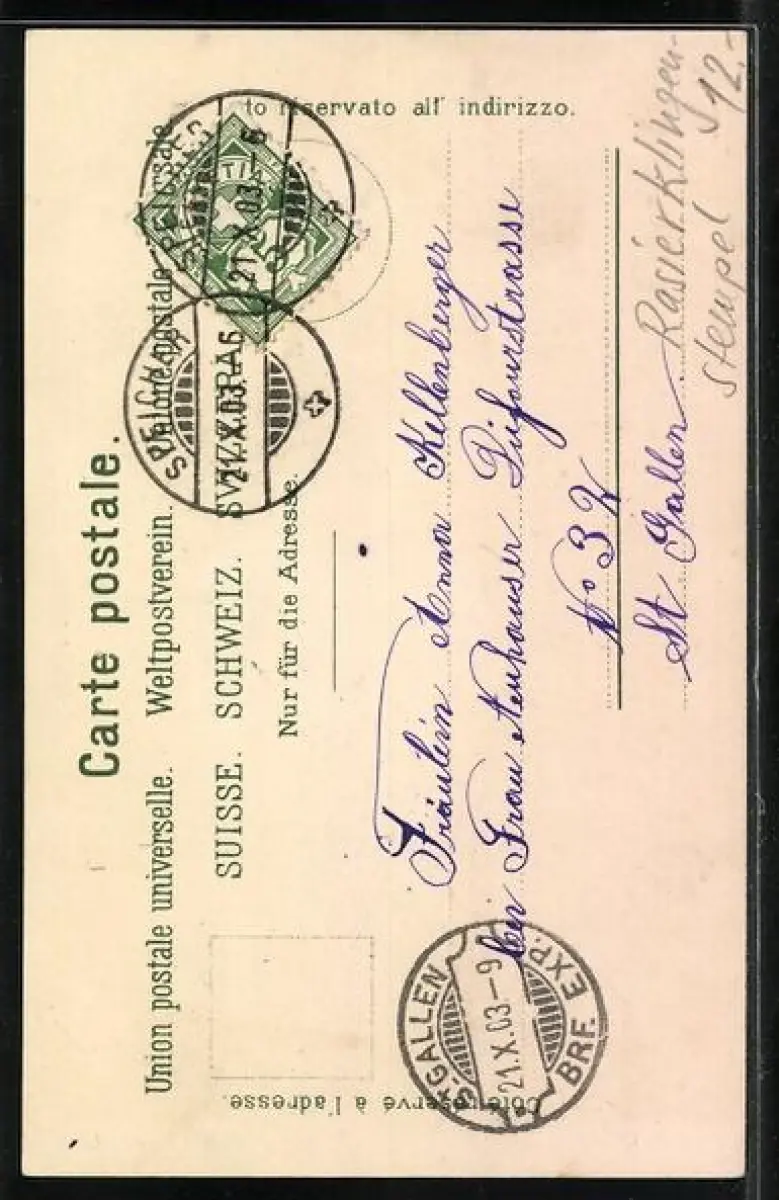 Carte postale.
Union postale universelle. Weltpostverein. Unione postale
SUISSE. SCHWEIZ. SVIZZERA.
Nur für die Adresse.
to riservato all' indirizzo.
Côté réservé à l'adresse.
SPEICHER
21.X.03.–6
SPEICHER
21.X.03.–6
Fräulein Anna Kellenberger
bei Frau Neuhauser Dufourstrasse
No 32
St Gallen
ST. GALLEN
21.X.03–9
BRF. EXP.
Rasierklingen-
stempel
12.–